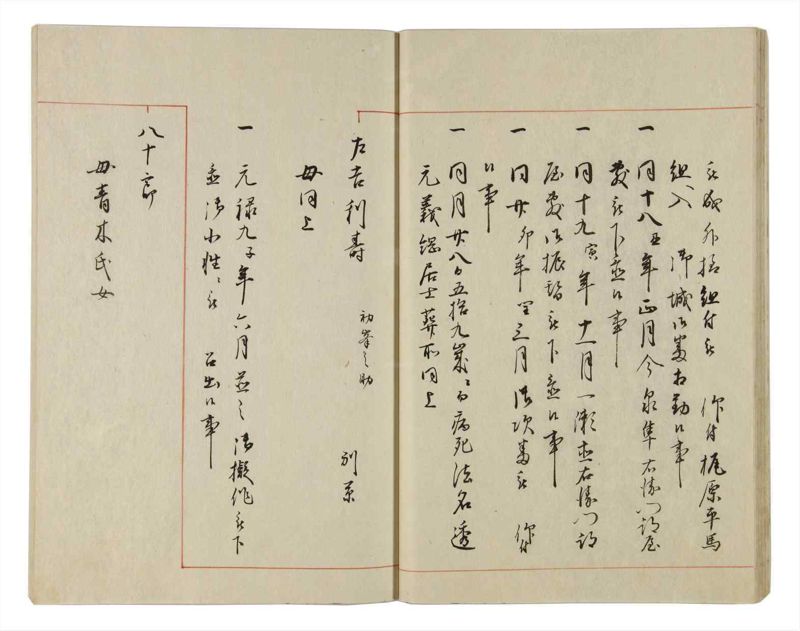 被成外様組付被 仰付梶原平馬
組入 御城御番相勤候事
一 同十八丑年正月今泉隼右衛門部屋
番被下置候事
一 同十九寅年十一月一瀬直右衛門部
屋番御振替被下置候事
一 同廿卯年閏三月御次番被 仰付
候事
一 同月廿八日五拾九歳ニ而病死法名透
元義鐵居士葬所同上
左吉利寿 初峯之助 別条
母同上
一 元禄九子年六月並之御擬作被下
置御小性ニ被 召出候事
八十郎
母青木氏女